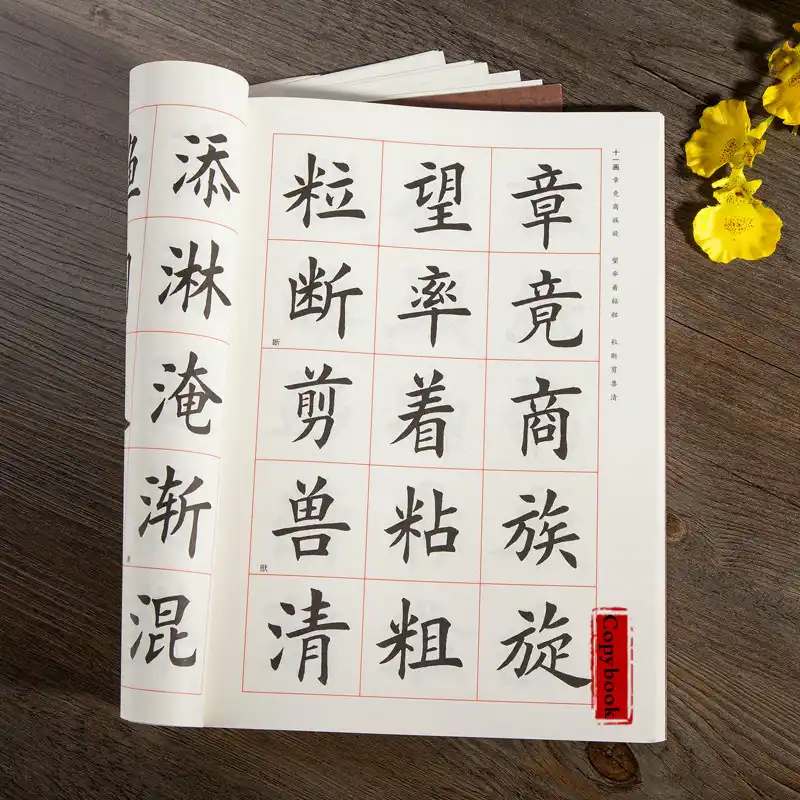 十一画 章竟商族旋 望率着粘粗 粒断剪兽清
章竟商族旋
望率着粘粗
粒断剪兽清
斷
獸
添淋淹渐混
Copybook